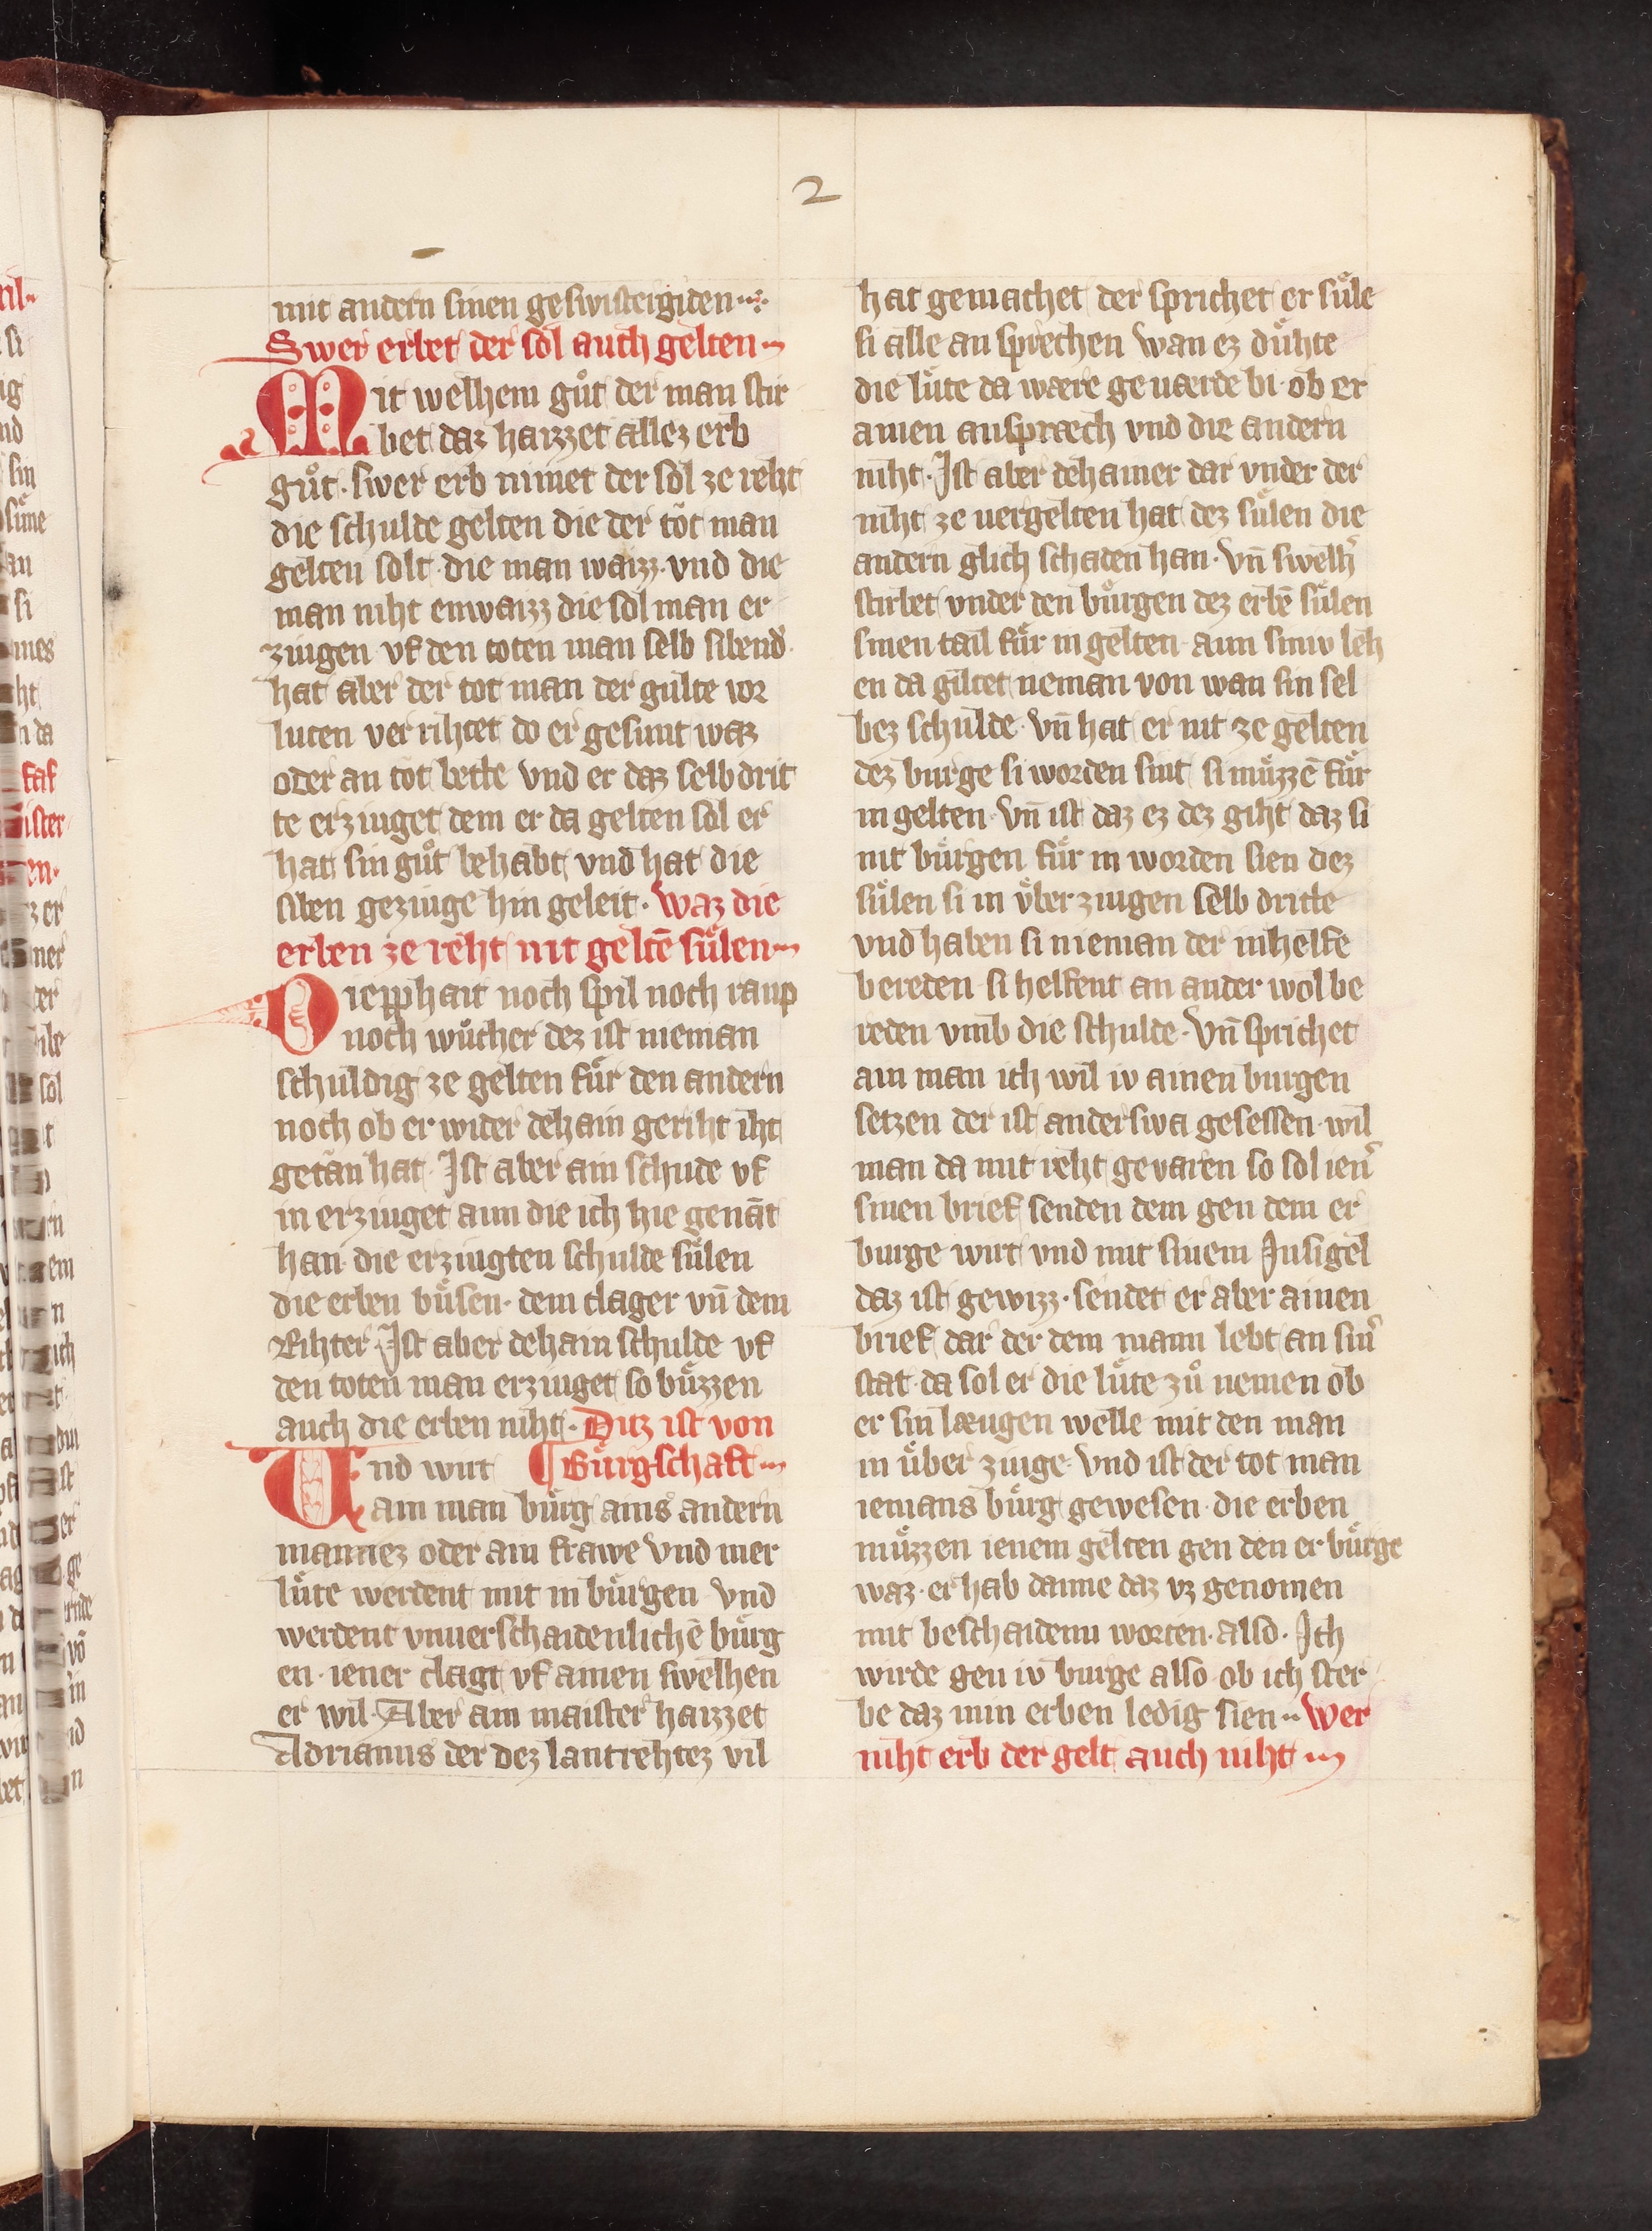 2
mit andern sinen geswistergiden
Swer erbet der sol auch gelten
Mit welhem guͦt der man stir
bet daz haizzet allez erb
guͦt. swer erb nimet der sol ze reht
die schulde gelten die der tot man
gelten solt. die man waizz. vnd die
man niht enwaizz die sol man er
ziugen vf den toten man selb sibend
hat aber der tot man der gulte vor
luten ver rihtet do er gesunt waz
oder an tot bette vnd er daz selb drit
te erziuget dem er da gelten sol er
hat sin guͦt behabt vnd hat die
siben geziuge hin geleit. Waz die
erben ze reht nit geltē suͤlen
Diepphait noch spil noch raup
noch wuͦcher dez ist nieman
schuldig ze gelten fuͤr den andern
noch ob er wider dehain geriht iht
getan hat. Ist aber ain schude vf
in erziuget aun die ich hie genāt
han. die erziugten schulde suͤlen
die erben buͤsen. dem clager vn̄ dem
Rihter. Ist aber dehain schulde vf
den toten man erziuget so buͤzzen
auch die erben niht. Ditz ist von
Vnd wirt ¶ Buͤrgschaft
ain man buͤrg ains andern
mannez oder ain frawe vnd mer
luͤte werdent mit in buͤrgen vnd
werdent vnuerschaidenlichē buͤrg
en. iener clagt vf ainen swelhen
er wil. Aber ain maister haizzet
Adrianus der dez lantrehtez vil
hat gemachet der sprichet er suͤle
si alle an sprechen wan ez duͤhte
die luͤte da wære ge uærde bi. ob er
ainen anspræch vnd die andern
niht. Ist aber dehainer dar vnder der
niht ze uergelten hat dez suͤlen die
andern glich schaden han. vn̄ swelh̓
stirbet vnder den buͤrgen dez erbē suͤlen
sinen tail fuͤr in gelten. aun siniv leh
en da giltet neman von wan sin sel
bez schulde. vn̄ hat er nit ze gelten
dez burge si worden sint si muͤzzē fuͤr
in gelten. vn̄ ist daz ez dez giht daz si
nit buͤrgen fuͤr in worden sien dez
suͤlen si in vͤber ziugen selb dritte
vnd haben si nieman der inhelfe
bereden. si helfent an ander wol be
reden vmb die schulde. vn̄ sprichet
ain man ich wil iv ainen burgen
setzen der ist anderswa gesessen. wil
man da mit reht gevaren so sol ien̓
sinen brief senden dem gen dem er
burge wirt vnd mit sinem Insigel
daz ist gewizz. sendet er aber ainen
brief dar der dem mann lebt an sin̓
stat. da sol er die luͤte zuͦ nemen ob
er sin læugen welle mit den man
in uͤber ziuge. vnd ist der tot man
iemans buͤrg gewesen. die erben
muͤzzen ienem gelten gen den er buͤrge
waz. er hab danne daz vz genomen
mit beschaidenn worten. also. Ich
wirde gen iv burge also. ob ich ster
be daz min erben ledig sien. Wer
niht erb der gelt auch niht